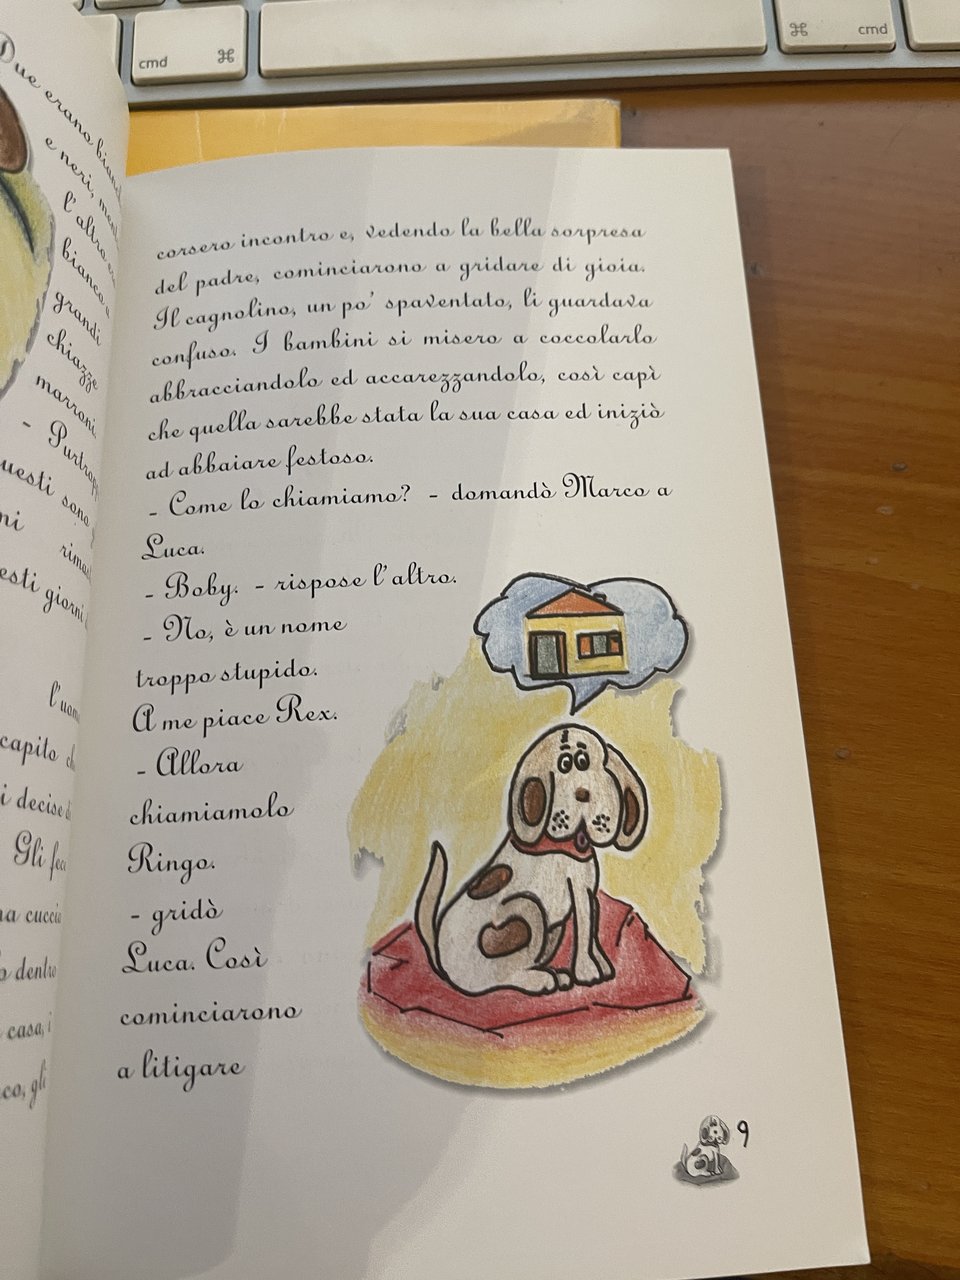 cmd ⌘
⌘ cmd
Due erano
e neri,
l'altro
bianco
grandi
chiazze
marroni.
-
sono
giorni
l'uomo
capito
decise
Gli
cuccia
dentro
casa, i
gli
corsero incontro e, vedendo la bella sorpresa
del padre, cominciarono a gridare di gioia.
Il cagnolino, un po' spaventato, li guardava
confuso. I bambini si misero a coccolarlo
abbracciandolo ed accarezzandolo, così capì
che quella sarebbe stata la sua casa ed iniziò
ad abbaiare festoso.
- Come lo chiamiamo? - domandò Marco a
Luca.
- Boby. - rispose l'altro.
- No, è un nome
troppo stupido.
A me piace Rex.
- Allora
chiamiamolo
Ringo.
- gridò
Luca. Così
cominciarono
a litigare
9